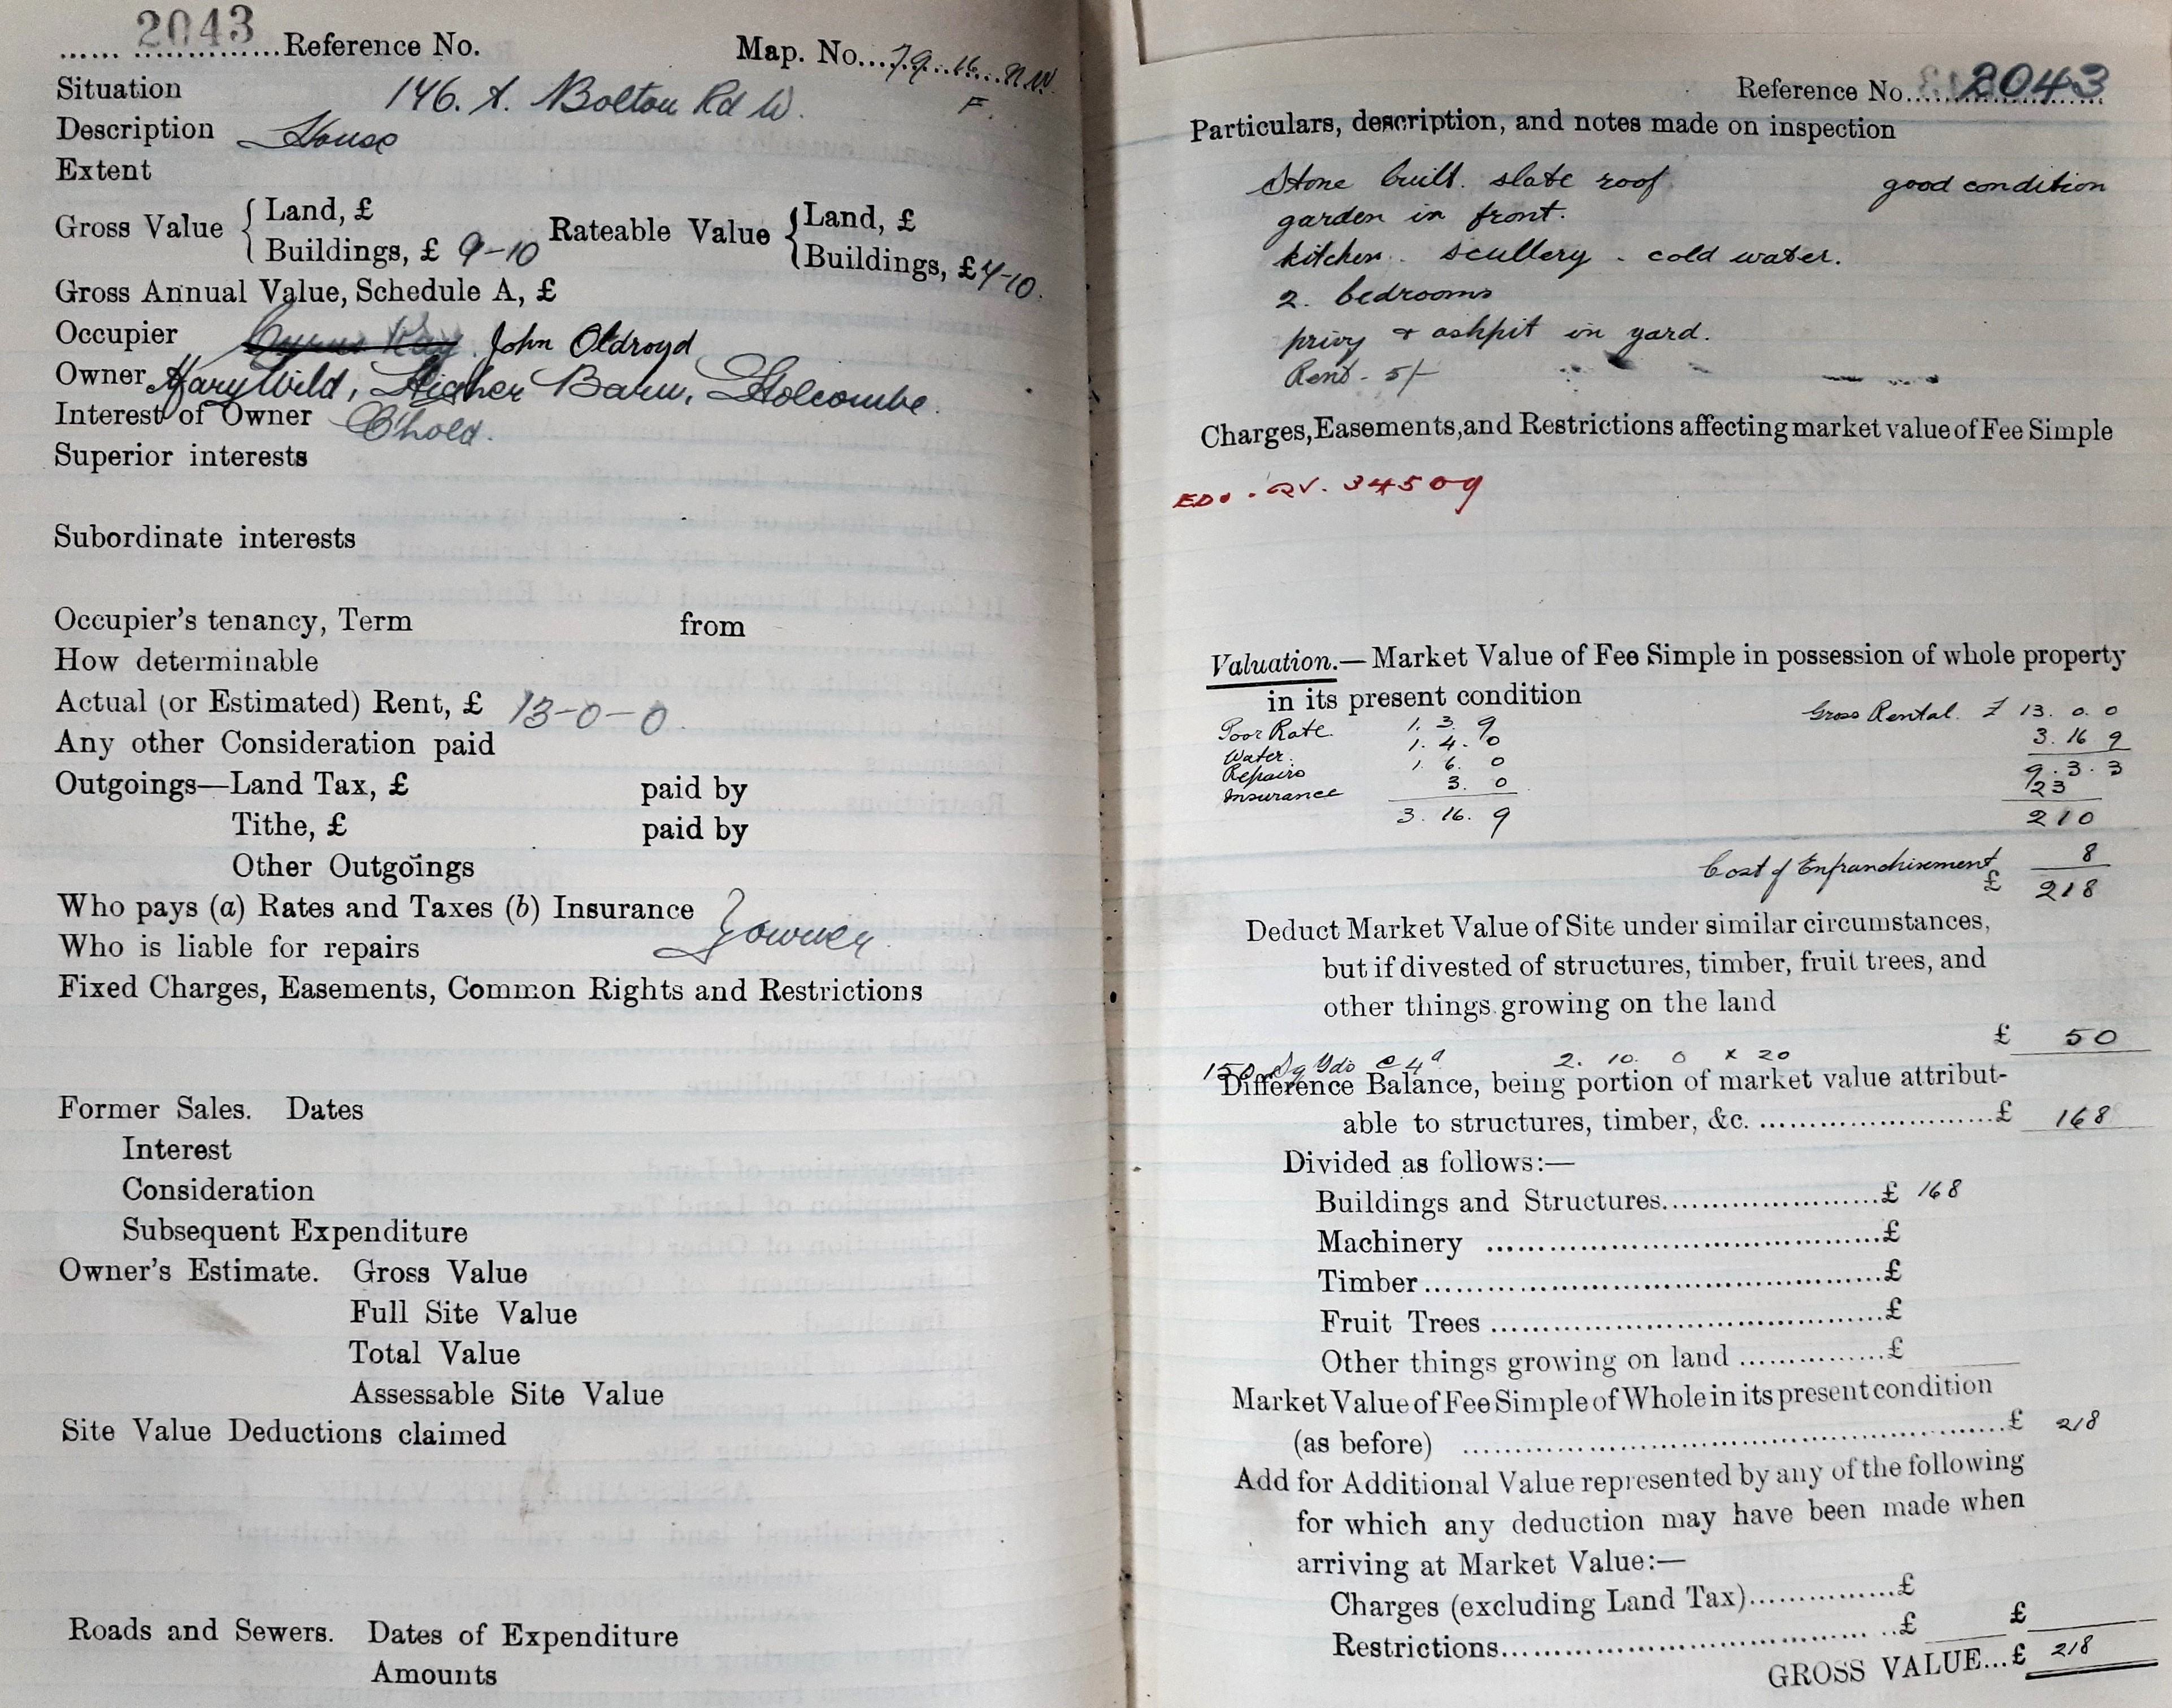 2043 Reference No. Map. No. 79. 16. N.W.
Situation 146. A. Bolton Rd W. F.
Description House
Extent
Gross Value { Land, £ Rateable Value { Land, £
Buildings, £ 9-10 Buildings, £ 7-10.
Gross Annual Value, Schedule A, £
Occupier Cyrus Kay. John Oldroyd
Owner Mary Wild, Higher Barn, Holcombe.
Interest of Owner Chold.
Superior interests
Subordinate interests
Occupier's tenancy, Term from
How determinable
Actual (or Estimated) Rent, £ 13-0-0.
Any other Consideration paid
Outgoings—Land Tax, £ paid by
Tithe, £ paid by
Other Outgoings
Who pays (a) Rates and Taxes (b) Insurance
Who is liable for repairs } owner
Fixed Charges, Easements, Common Rights and Restrictions
Former Sales. Dates
Interest
Consideration
Subsequent Expenditure
Owner's Estimate. Gross Value
Full Site Value
Total Value
Assessable Site Value
Site Value Deductions claimed
Roads and Sewers. Dates of Expenditure
Amounts
Reference No. 2043
Particulars, description, and notes made on inspection
Stone built. slate roof. good condition
garden in front.
kitchen. scullery - cold water.
2. bedrooms
privy & ashpit in yard.
Rent - 5/-
Charges, Easements, and Restrictions affecting market value of Fee Simple
34509
Valuation.—Market Value of Fee Simple in possession of whole property
in its present condition
Gross Rental. £ 13. 0. 0
Poor Rate. 1. 3. 9
3. 16 9
Water. 1. 4. 0
9. 3. 3
Repairs 1. 6. 0
23
Insurance 3. 0
3. 16. 9
210
Cost of Enfranchisement 8
£ 218
Deduct Market Value of Site under similar circumstances,
but if divested of structures, timber, fruit trees, and
other things growing on the land
£ 50
150 Sq Yds @ 4d 2. 10. 0 x 20
Difference Balance, being portion of market value attribut-
able to structures, timber, &c. £ 168
Divided as follows:—
Buildings and Structures £ 168
Machinery £
Timber £
Fruit Trees £
Other things growing on land £
Market Value of Fee Simple of Whole in its present condition
(as before) £ 218
Add for Additional Value represented by any of the following
for which any deduction may have been made when
arriving at Market Value:—
Charges (excluding Land Tax) £
Restrictions £ £
GROSS VALUE...£ 218